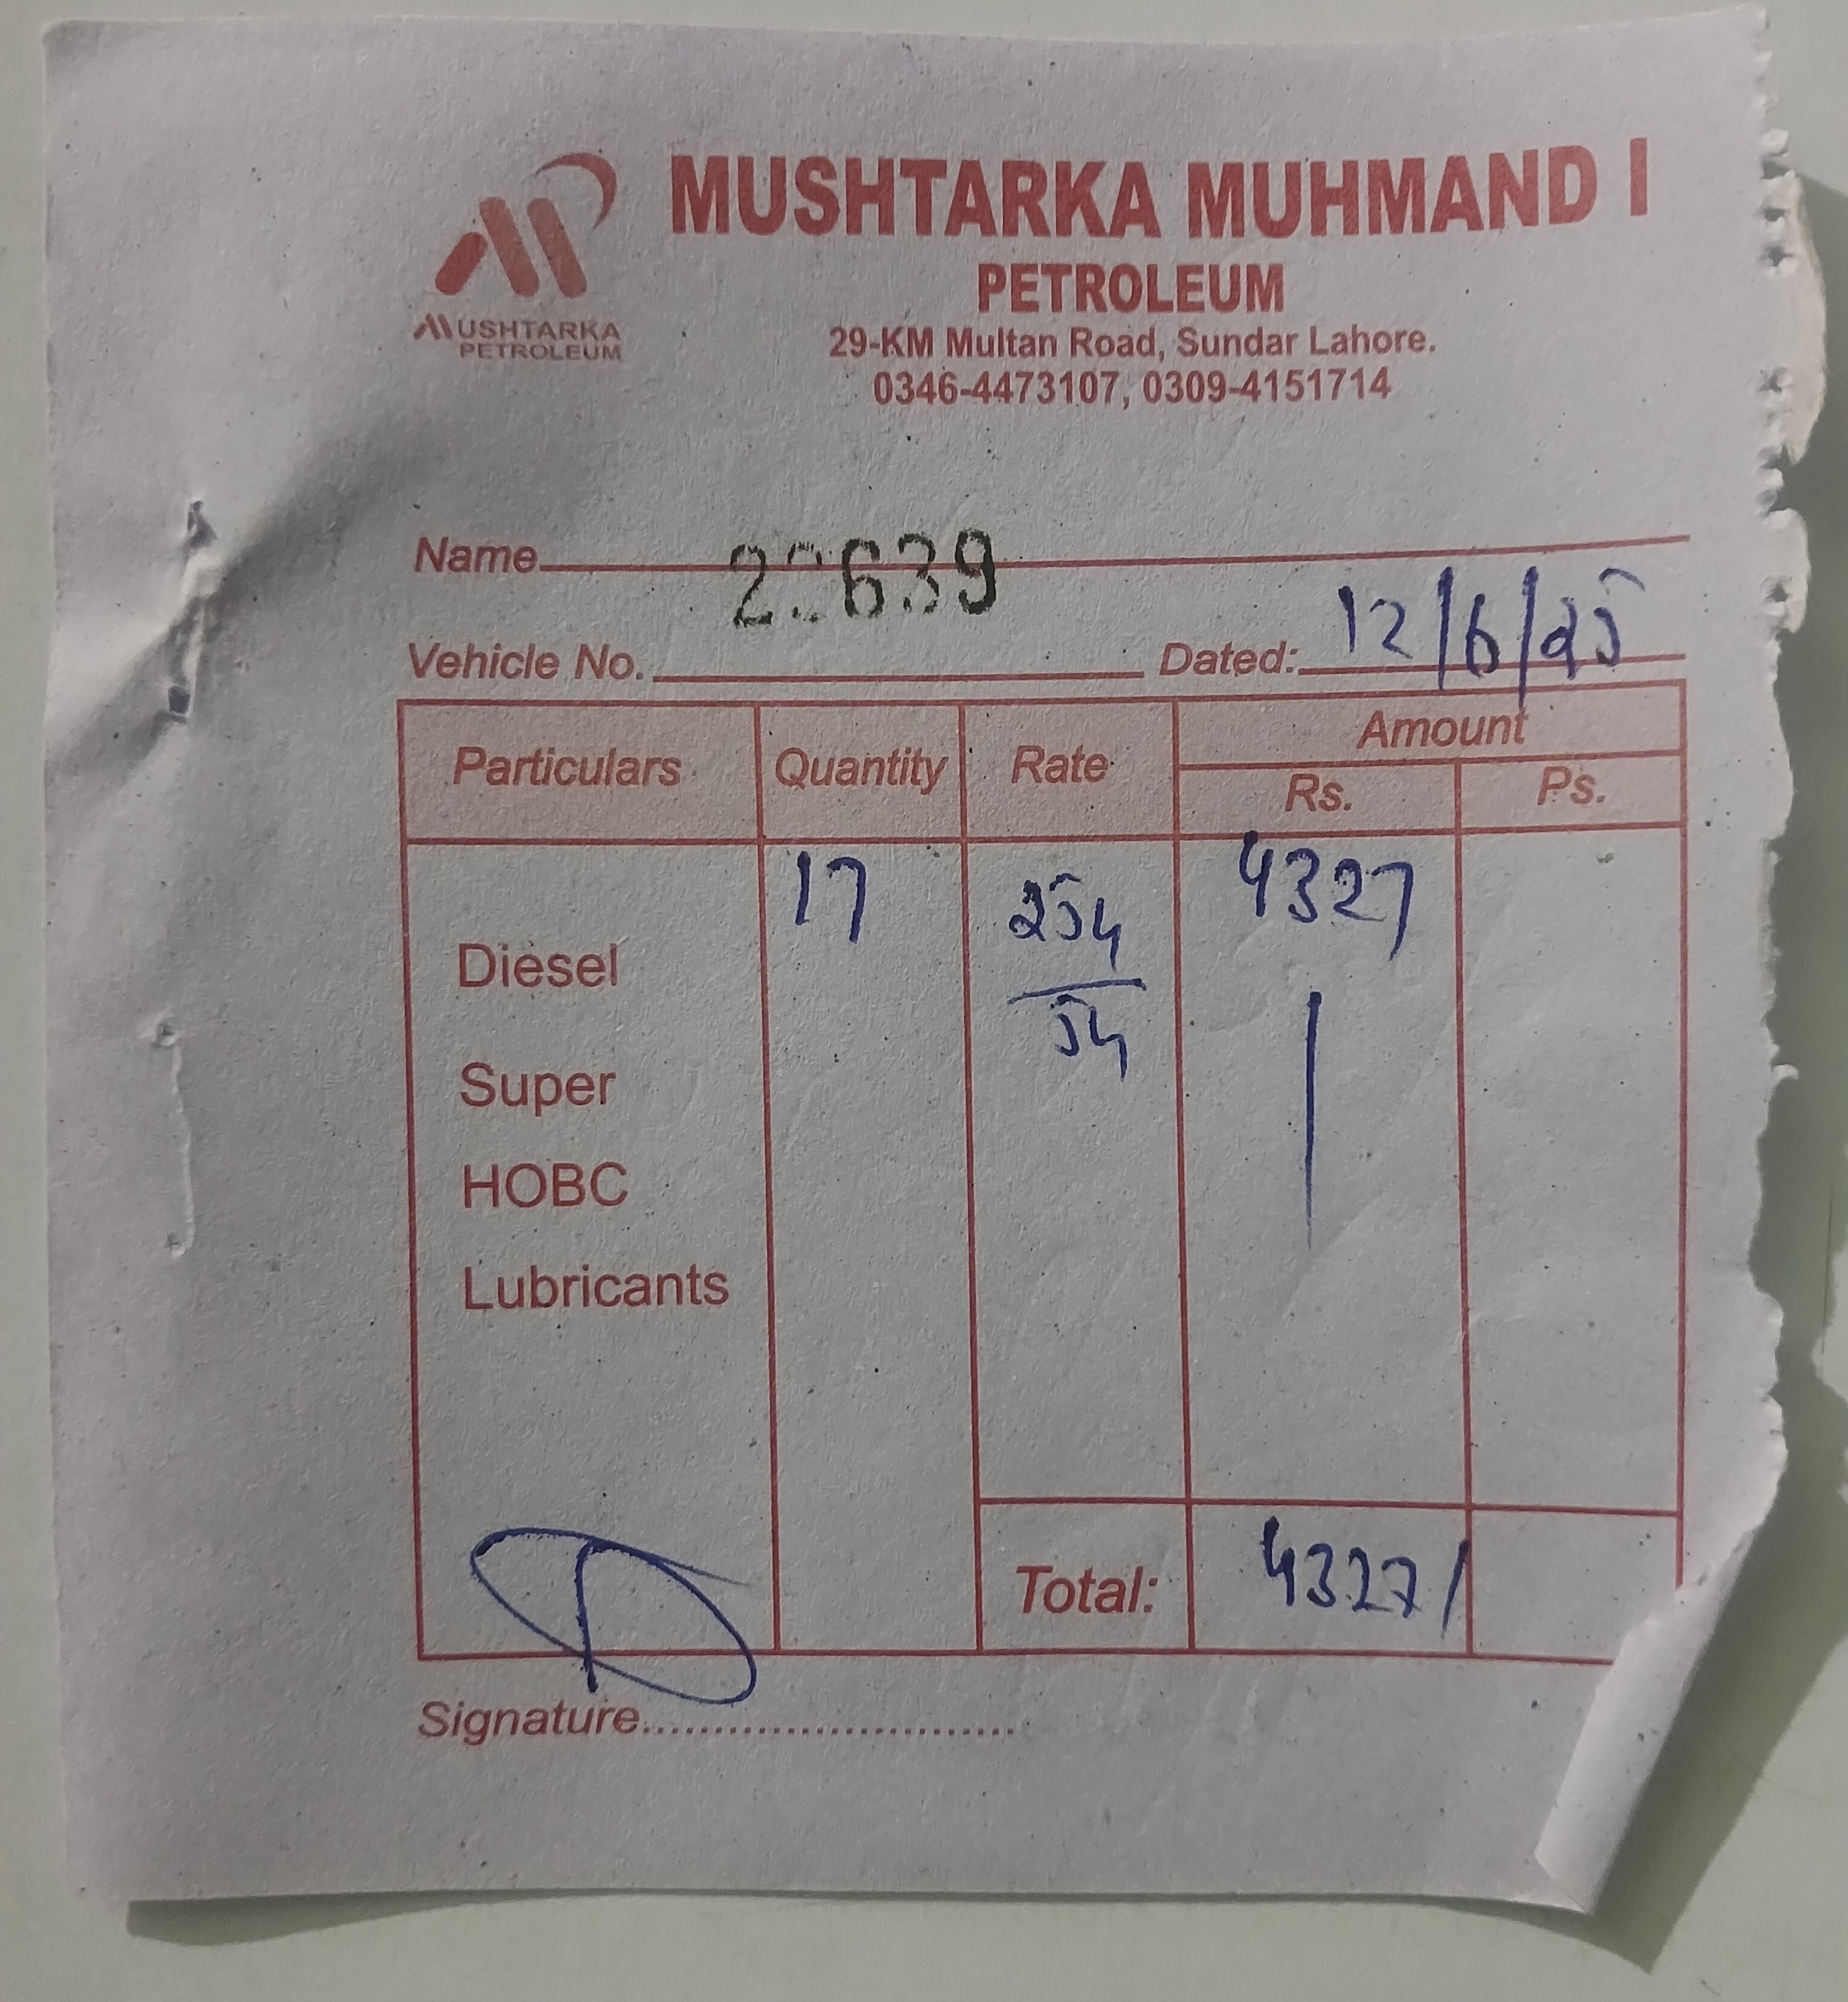 MUSHTARKA MUHMAND I
PETROLEUM
MUSHTARKA
PETROLEUM
29-KM Multan Road, Sundar Lahore.
0346-4473107, 0309-4151714
Name
Vehicle No. Dated: 12/6/25
Particulars Quantity Rate Amount
Rs. Ps.
17 254 4327
54
Diesel
Super
HOBC
Lubricants
Total: 4327/
Signature